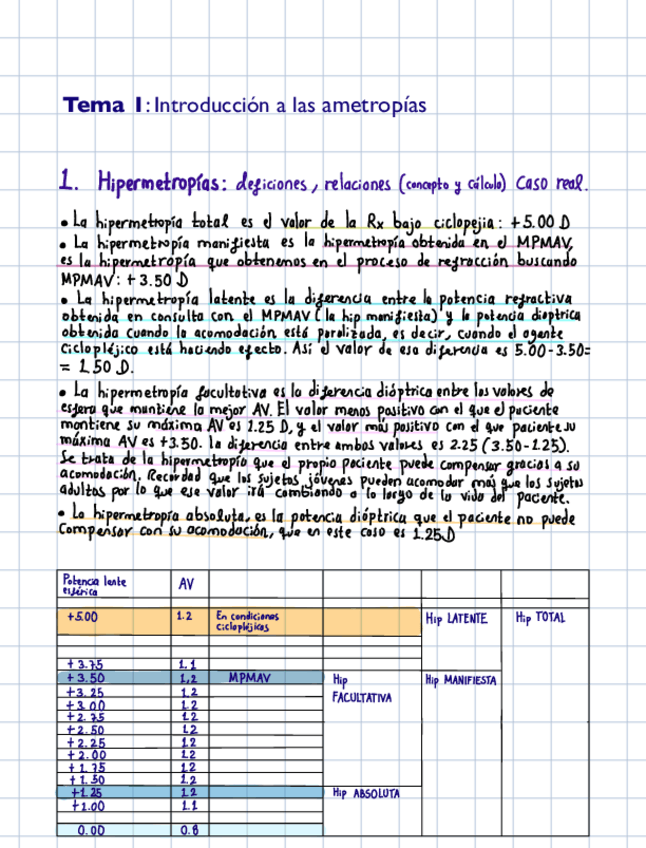 Tema 1: Introducción a las ametropías
1. Hipermetropías: deficiones, relaciones (concepto y cálculo) Caso real.
• La hipermetropía total es el valor de la Rx bajo ciclopejia: +5.00 D
• La hipermetropía manifiesta es la hipermetropía obtenida en el MPMAV,
es la hipermetropía que obtenemos en el proceso de refracción buscando
MPMAV: +3.50 D
• La hipermetropía latente es la diferencia entre la potencia refractiva
obtenida en consulta con el MPMAV (la hip manifiesta) y la potencia dioptrica
obtenida cuando la acomodación está paralizada, es decir, cuando el agente
cicloplėjico está haciendo efecto. Así el valor de esa diferencia es 5.00-3.50=
= 1.50 D.
• La hipermetropía facultativa es la diferencia dióptrica entre los valores de
esfera que mantiene la mejor AV. El valor menos positivo con el que el paciente
mantiene su máxima AV es 1.25 D, y el valor más positivo con el que paciente su
máxima AV es +3.50. la diferencia entre ambos valores es 2.25 (3.50-1.25).
Se trata de la hipermetropía que el propio paciente puede compensar gracias a su
acomodación. Recordad que los sujetos jóvenes pueden acomodar más que los sujetos
adultos por lo que ese valor irá cambiando a lo largo de la vida del paciente.
• La hipermetropía absoluta, es la potencia dióptrica que el paciente no puede
Compensar con su acomodación, que en este caso es 1.25D
Potencia lente esférica AV
+5.00 1.2 En condiciones cicloplėjicas Hip LATENTE Hip TOTAL
+3.75 1.1
+3.50 1.2 MPMAV Hip FACULTATIVA Hip MANIFIESTA
+3.25 1.2
+3.00 1.2
+2.75 1.2
+2.50 1.2
+2.25 1.2
+2.00 1.2
+1.75 1.2
+1.50 1.2
+1.25 1.2 Hip ABSOLUTA
+1.00 1.1
0.00 0.8